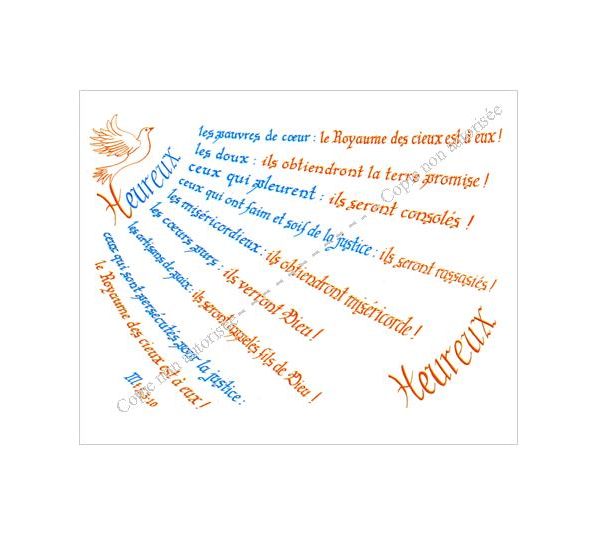 Heureux
les pauvres de cœur : le Royaume des cieux est à eux !
les doux : ils obtiendront la terre promise !
ceux qui pleurent : ils seront consolés !
ceux qui ont faim et soif de la justice : ils seront rassasiés !
les miséricordieux : ils obtiendront miséricorde !
les cœurs purs : ils verront Dieu !
les artisans de paix : ils seront appelés fils de Dieu !
ceux qui sont persécutés pour la justice :
le Royaume des cieux est à eux !
Mt 5,3-10
Heureux
Copie non autorisée
Copie non autorisée